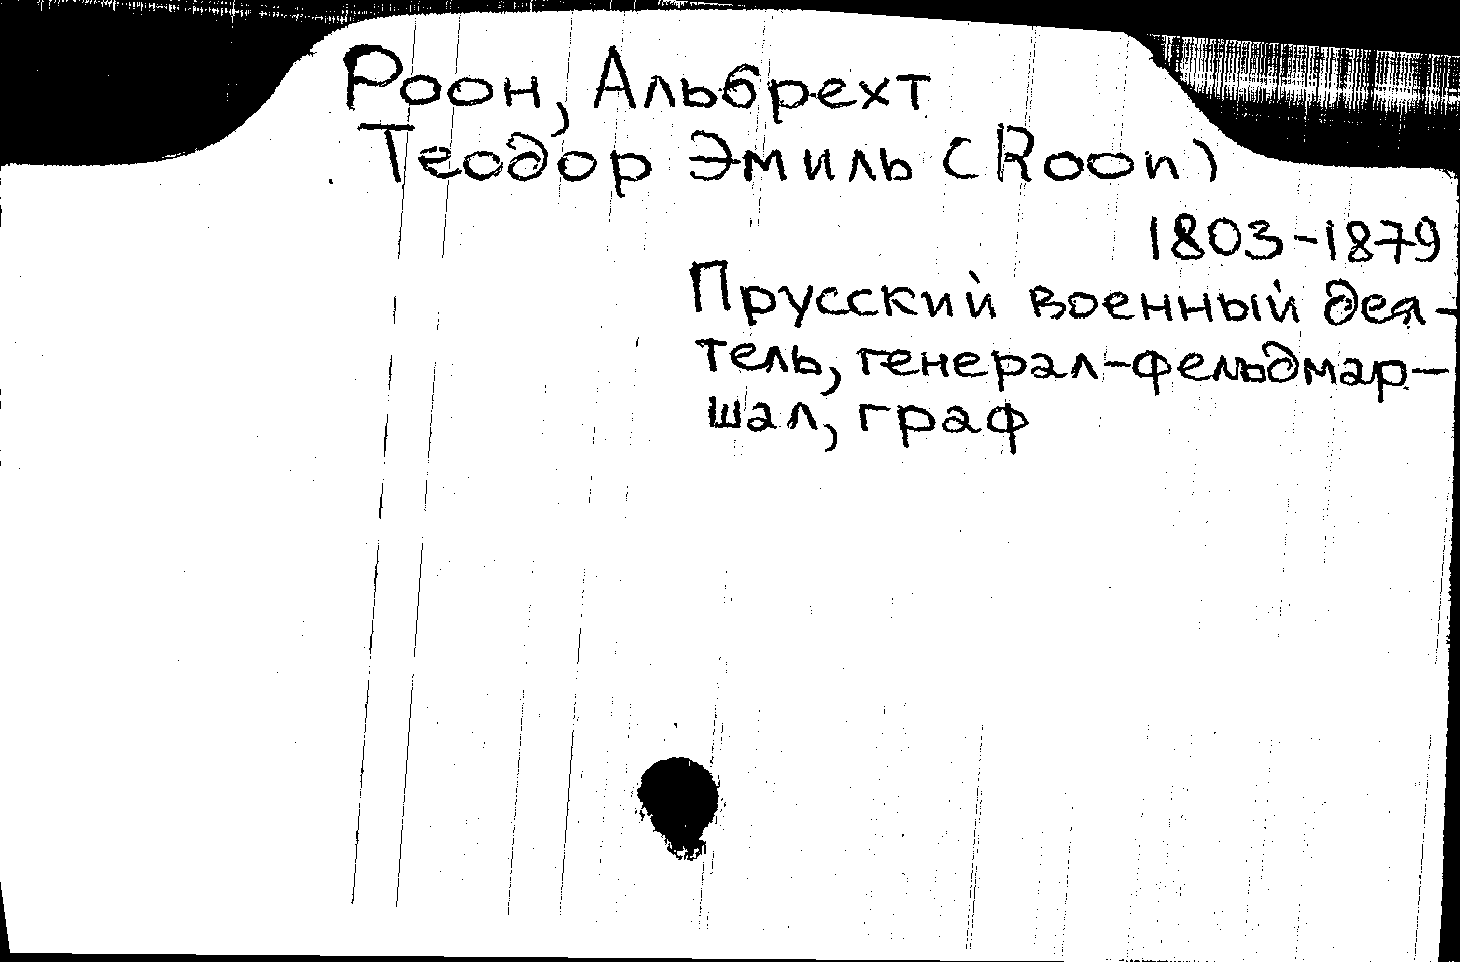 Роон, Альбрехт
Теодор Эмиль (Roon)
1803-1879
Прусский военный дея-
тель, генерал-фельдмар-
шал, граф